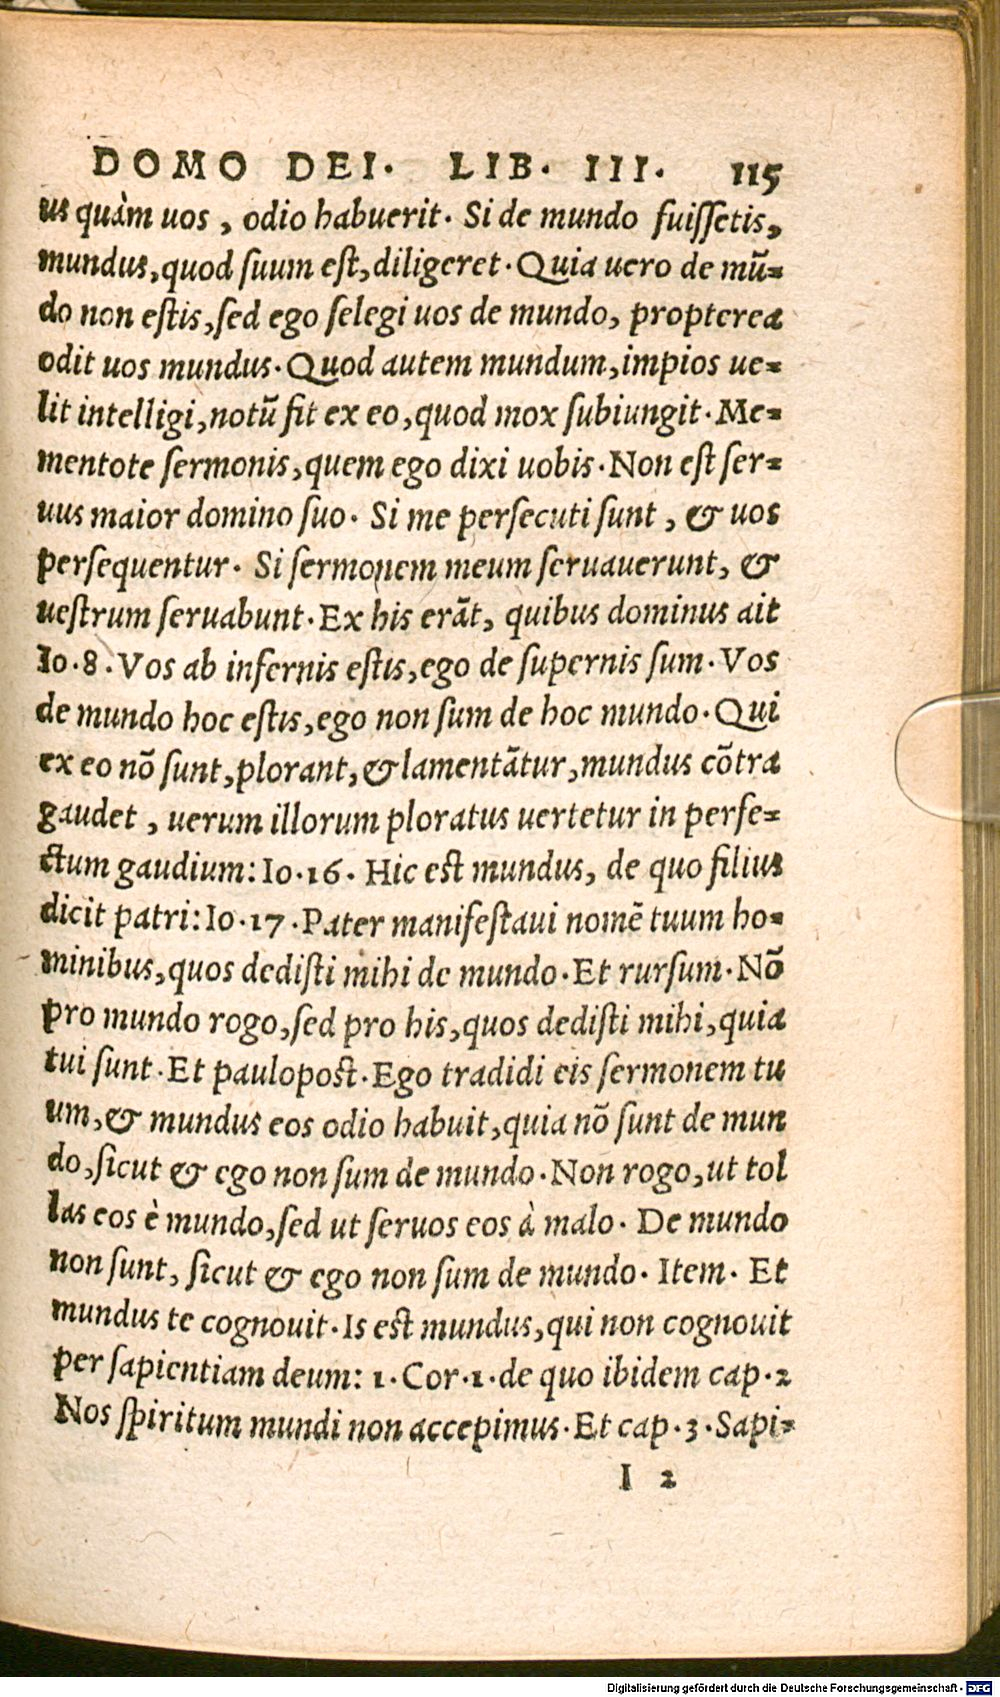 DOMO DEI. LIB. III. 115
us quàm uos, odio habuerit. Si de mundo fuissetis,
mundus, quod suum est, diligeret. Quia uero de mũ-
do non estis, sed ego selegi uos de mundo, propterea
odit uos mundus. Quod autem mundum, impios ue-
lit intelligi, notũ fit ex eo, quod mox subiungit. Me-
mentote sermonis, quem ego dixi uobis. Non est ser-
uus maior domino suo. Si me persecuti sunt, & uos
persequentur. Si sermonem meum seruauerunt, &
uestrum seruabunt. Ex his erãt, quibus dominus ait
Io. 8. Vos ab infernis estis, ego de supernis sum. Vos
de mundo hoc estis, ego non sum de hoc mundo. Qui
ex eo nõ sunt, plorant, & lamentãtur, mundus cõtra
gaudet, uerum illorum ploratus uertetur in perfe-
ctum gaudium: Io. 16. Hic est mundus, de quo filius
dicit patri: Io. 17. Pater manifestaui nomẽ tuum ho-
minibus, quos dedisti mihi de mundo. Et rursum. Nõ
pro mundo rogo, sed pro his, quos dedisti mihi, quia
tui sunt. Et paulopost. Ego tradidi eis sermonem tu
um, & mundus eos odio habuit, quia nõ sunt de mun
do, sicut & ego non sum de mundo. Non rogo, ut tol
las eos è mundo, sed ut seruos eos à malo. De mundo
non sunt, sicut & ego non sum de mundo. Item. Et
mundus te cognouit. Is est mundus, qui non cognouit
per sapientiam deum: 1. Cor. 1. de quo ibidem cap. 2
Nos spiritum mundi non accepimus. Et cap. 3. Sapi-
I 2
Digitalisierung gefördert durch die Deutsche Forschungsgemeinschaft - DFG